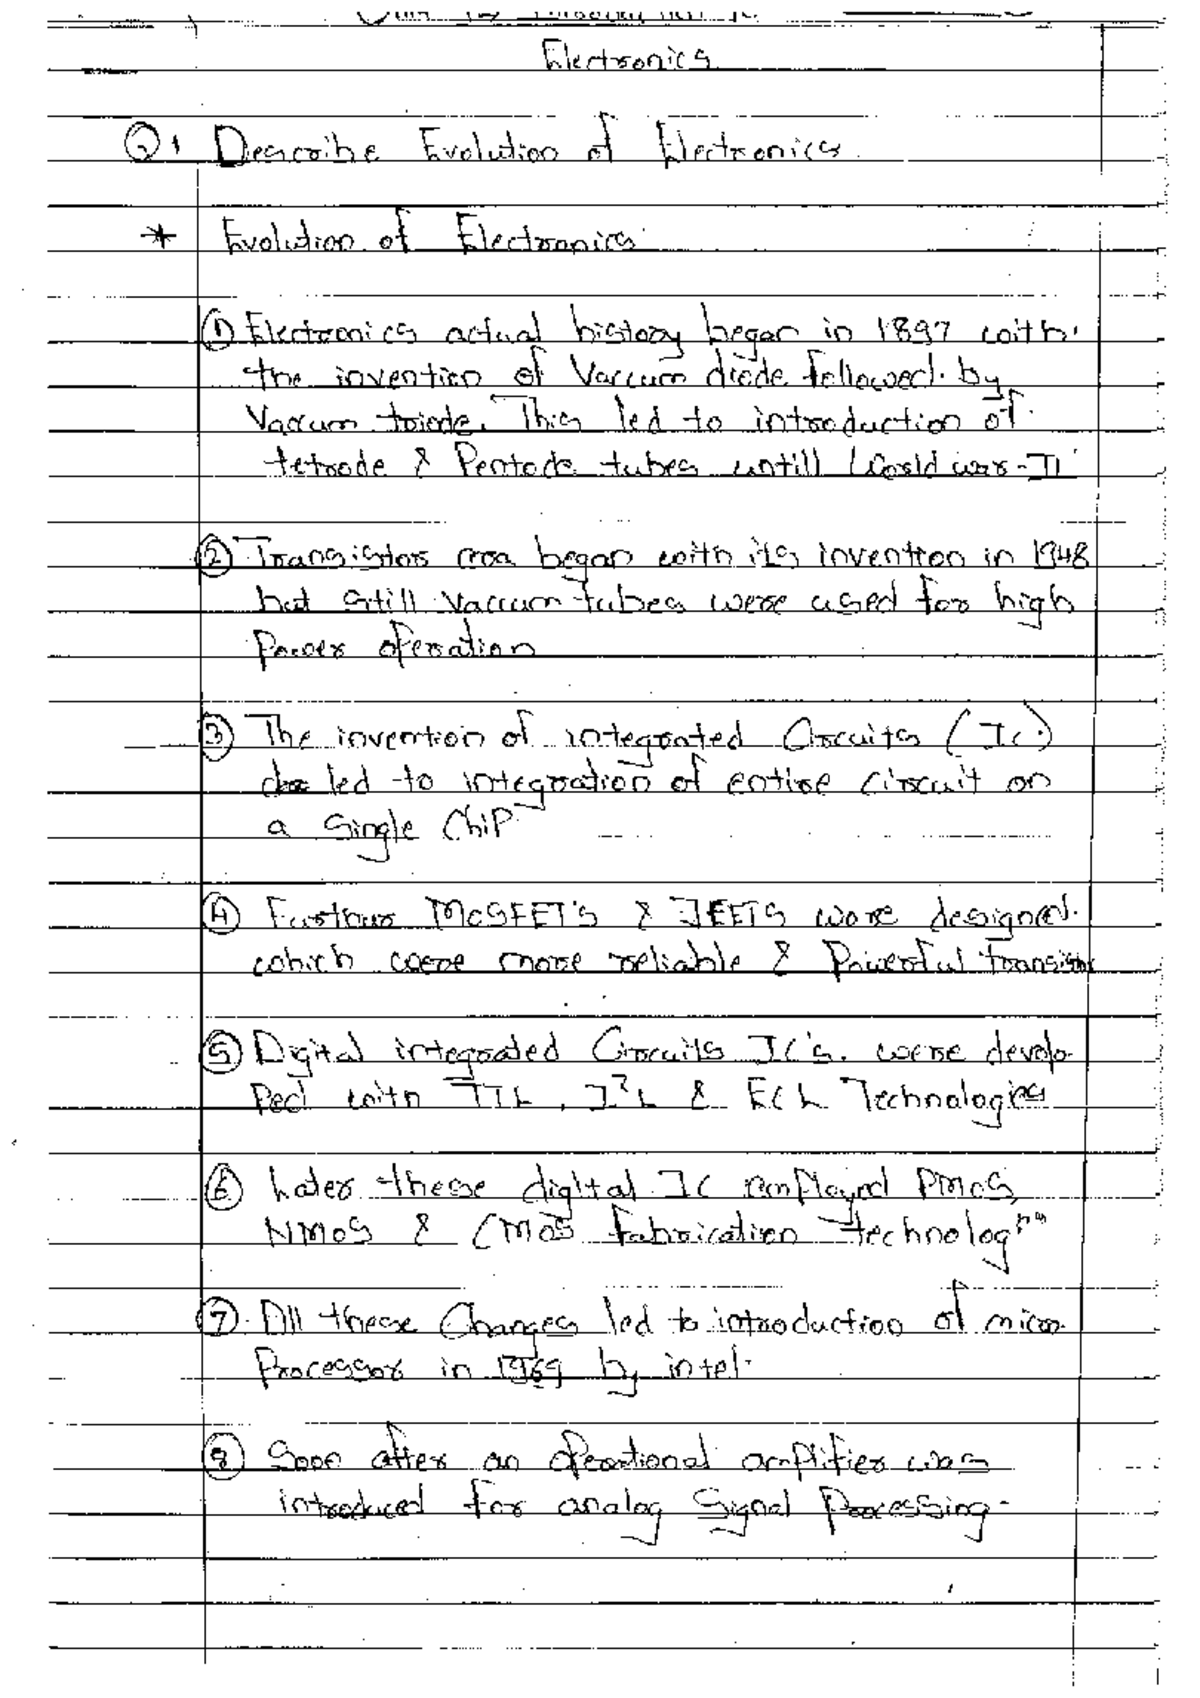 Electronics
Q.1 Describe Evolution of Electronics.
* Evolution of Electronics
① Electronics actual history began in 1897 with
the invention of Vaccum diode followed by
Vaccum triode. This led to introduction of
tetrode & Pentode tubes untill World war-II
② Transistors era began with its invention in 1948
but still vaccum tubes were used for high
Power operation
③ The invention of integrated Circuits (Ic.)
led to integration of entire circuit on
a single Chip
④ Further MOSFET's & JFETS were designed.
which were more reliable & Powerful transistor
⑤ Digital integrated Circuits IC's. were develo-
ped with TTL, I²L & ECL Technologies
⑥ Later these digital IC employed PMOS,
NMOS & CMOS fabrication technology
⑦ All these Changes led to introduction of micro-
Processor in 1969 by intel.
⑧ Soon after an operational amplifier was
introduced for analog Signal Processing-